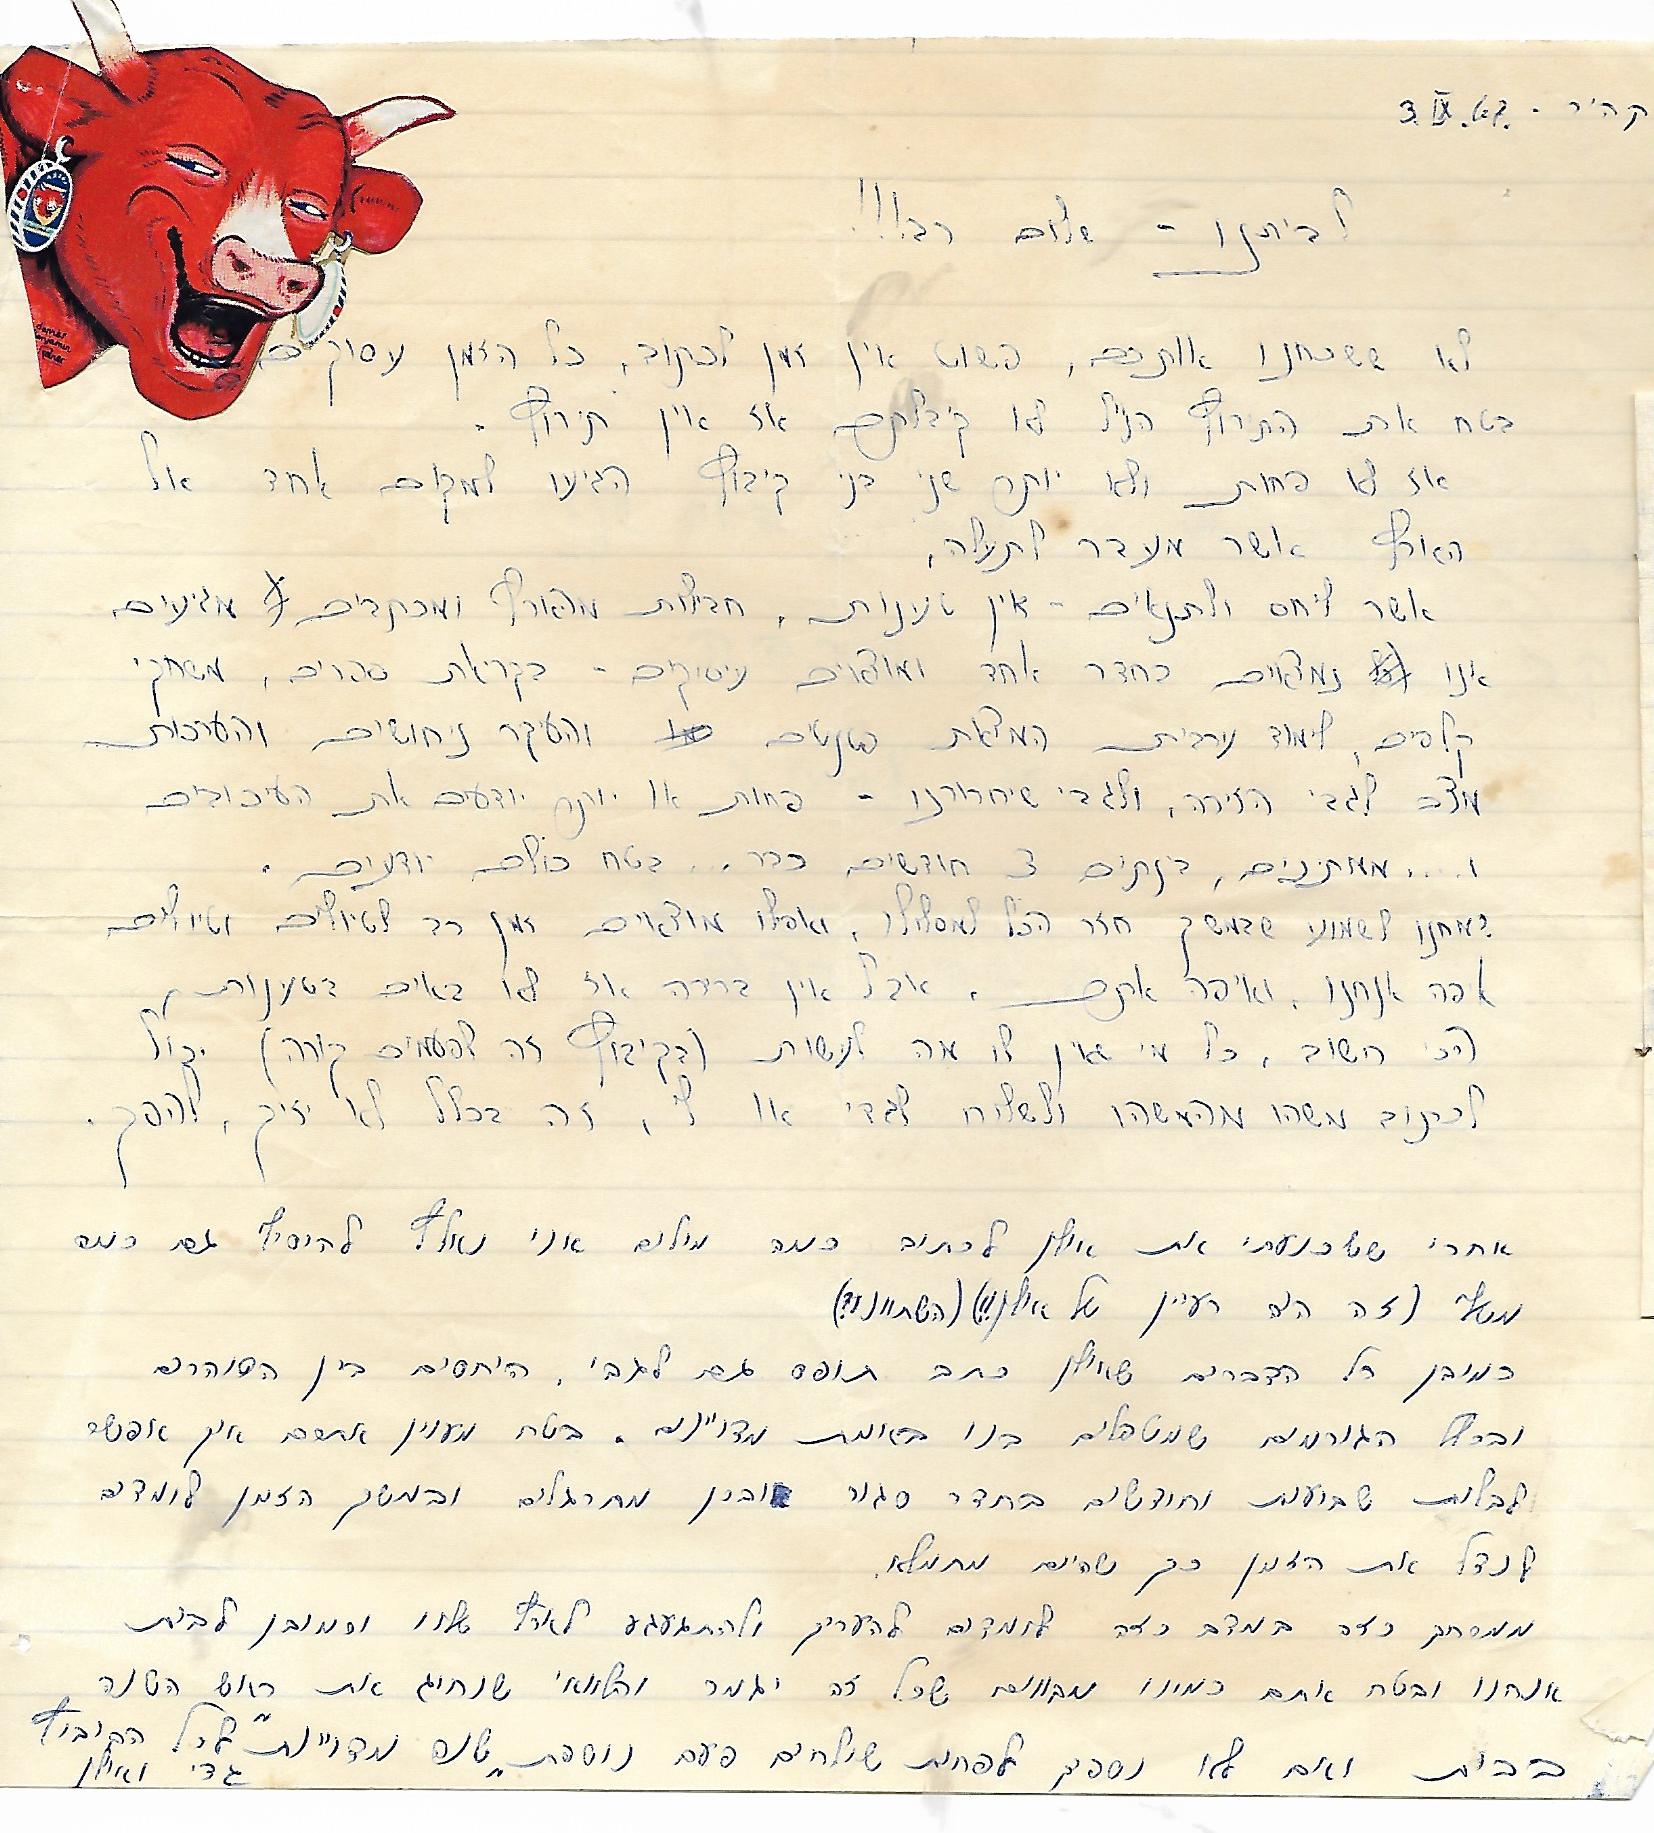 קהיר - 3.IX.
לביתנו - שלום רב!!!
לא ששכחנו אותכם, פשוט אין זמן לכתוב, כל הזמן עסוקים
בטח את התירוץ הנ"ל לא קיבלתם אז אין תירוץ.
אז לא פחות ולא יותר שני בני קיבוץ הגיעו למקום אחד אל
הארץ אשר מעבר לתעלה,
אשר ליחס ולתנאים - אין טענות, חבילות מהארץ ומכתבים מגיעים
אינו נמצאים בחדר אחד ומוצאים עיסוקים - בקריאת ספרים, משחקי
קלפים, לימוד ערבית המצאת פטנטים והעקר ניחושים והערכות
מצב לגבי הזירה, ולגבי שיחרורנו - פחות או יותר יודעים את העיכובים
ו.... ממתינים, בנתים 3 חודשים כבר... בטח כולם יודעים.
שמחנו לשמוע שבמשק חזר הכל למסלולו, ואפילו מוצאים זמן רב לטיולים וטיולים
אפה אנחנו, ואיפה אתם. אבל אין ברירה אז לא באים בטענות
הכי חשוב, כל מי שאין לו מה לעשות (בקיבוץ זה לפעמים קורה) יכול
לכתוב משהו מהמשהו ולשלוח לגדי או לי, זה בכלל לא יזיק, להיפך.
אחרי ששכנעתי את אילן לכתוב כמה מילים אני נאלץ להוסיף גם כמה
משלי (זה היה רעיון של אילן!!) (השתוונו?)
כמובן כל הדברים שאילן כתב תופס גם לגבי, היחסים בין הסוהרים
ובכלל הגורמים שמטפלים בנו באמת מצויינים. בטח מעניין אתכם איך אפשר
לבלות שבועות וחודשים בחדר סגור ובכן מתרגלים ובמשך הזמן לומדים
לנצל את הזמן כך שהיום מתמלא.
ממרחק כזה במצב כזה לומדים להעריך ולהתגעגע לארץ שלנו וכמובן לבית
אנחנו ובטח אתם כמונו מקווים שכל זה יגמר והלוואי שנחוג את ראש השנה
בבית ואם לא נספיק לפחות שולחים פעם נוספת "שנה מצויינת" לכל הקיבוץ
גדי ואילן